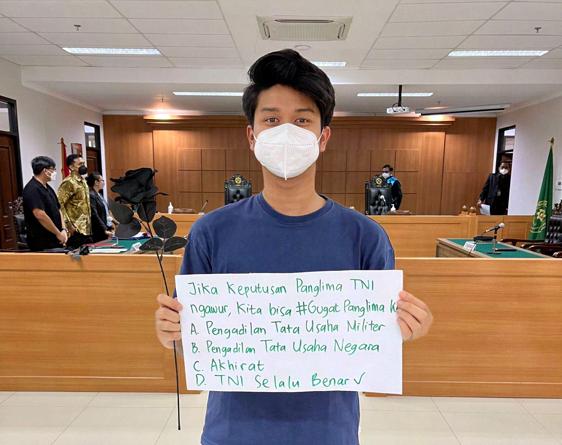 Jika Keputusan Panglima TNI
ngawur, Kita bisa #Gugat Panglima k
A. Pengadilan Tata Usaha Militer
B. Pengadilan Tata Usaha Negara
C. Akhirat
D. TNI Selalu Benar ✓